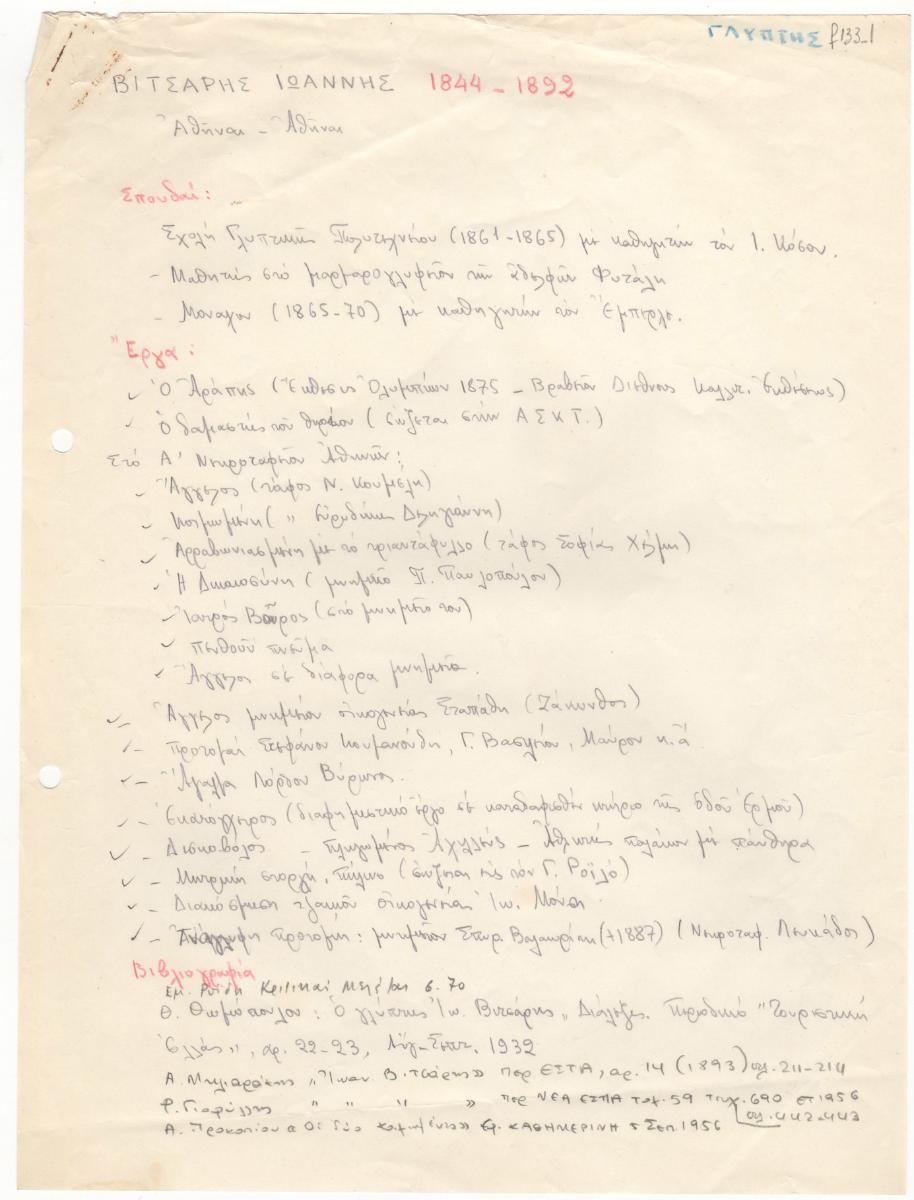 ΓΛΥΠΤΗΣ f133_1
ΒΙΤΣΑΡΗΣ ΙΩΑΝΝΗΣ 1844 - 1892
Ἀθῆναι - Ἀθῆναι
Σπουδαί:
Σχολή Γλυπτικῆς Πολυτεχνίου (1861-1865) μέ καθηγητήν τόν Ι. Κόσον.
- Μαθητής στό μαρμαρογλυφεῖον τῶν ἀδελφῶν Φυτάλη
- Μοναχον (1865-70) μέ καθηγητήν τόν
Ἔργα:
Ὁ Ἀράπης (Ἔκθεσις Ὀλυμπίων 1875 - Βραβεῖον Διεθνοῦς Καλλιτ. Ἐκθέσεως)
Ὁ δαμαστής τοῦ θηρίου (σώζεται στήν ΑΣΚΤ.)
Στό Α' Νεκροταφεῖον Ἀθηνῶν:
Ἄγγελος (τάφος Ν. Κουμέλη)
Κοιμωμένη ( " Εὐρυδίκης Δεληγιάννη)
Ἀρραβωνιασμένη μέ τό τριαντάφυλλο (τάφος Σοφίας)
Ἡ Δικαιοσύνη (μνημεῖο Π. Παυλοπούλου)
Ἰατρός Βοῦρος (στό μνημεῖο του)
Πενθοῦν πνεῦμα
Ἄγγελος σέ διάφορα μνημεῖα.
- Ἄγγελος μνημείου οἰκογενείας Σταπάθη (Ζάκυνθος)
- Προτομαί Στεφάνου Κουμανούδη, Γ. Βασιλείου, Μαύρου κ.ἄ
- Ἄγαλμα Λόρδου Βύρωνος.
- Ἑκατόγχειρος (διαφημιστικό ἔργο σέ κατεδαφισθέν κτήριο τῆς ὁδοῦ Ἑρμοῦ)
- Δισκοβόλος - Πληγωμένος Ἀχιλλεύς - Ἀθλητής παλαίων μέ πάνθηρα
- Μητρική στοργή, πήλινο (σώζεται εἰς τόν Γ. Ροϊλό)
- Διακόσμηση τζακιοῦ οἰκογενείας Ἰω.
- Ἀνάγλυφη προτομή: μνημεῖον Σπυρ. Βαλαωρίτη (+1887) (Νεκροταφ. Λευκάδος)
Βιβλιογραφία
Εμ. Ροΐδη Κριτικαί Μελέται σ. 70
Θ. Θωμόπουλου: Ὁ γλύπτης Ἰω. Βιτσάρης " Διάλεξις. Περιοδικό "Τουριστική
Ἑλλάς", αρ. 22-23, Αὔγ-Σεπτ. 1932
Α. Μηλιαράκης "Ἰωαν. Βιτσάρης" περ ΕΣΤΙΑ, αρ. 14 (1893) σελ. 211-214
Φ. Γιοφύλλης " " " " περ ΝΕΑ ΕΣΤΙΑ τομ. 59 τευχ. 690 ετ 1956
σελ. 442-443
Α. Προκοπίου «Οἱ δύο κοιμωμένες» Εφ. ΚΑΘΗΜΕΡΙΝΗ 5 Σεπ. 1956